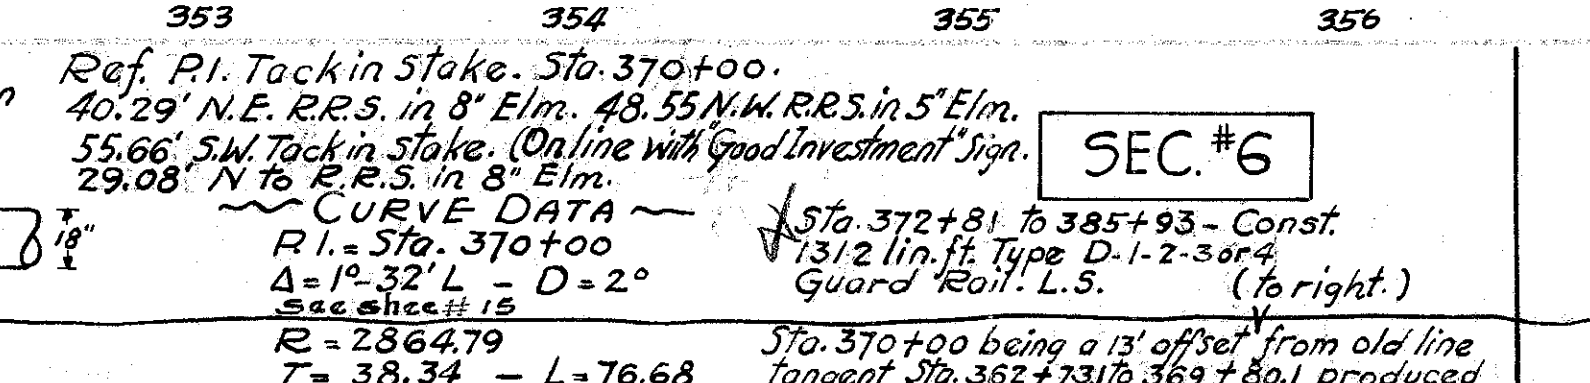 353 354 355 356
Ref. P.I. Tack in Stake. Sta. 370+00.
40.29' N.E. R.R.S. in 8" Elm. 48.55 N.W. R.R.S. in 5" Elm.
55.66' S.W. Tack in stake. (On line with "Good Investment" Sign.
29.08' N to R.R.S. in 8" Elm.
SEC. #6
~~ CURVE DATA ~~
P.I. = Sta. 370+00
Δ = 1°-32' L - D = 2°
See sheet # 15
R = 2864.79
T = 38.34 - L = 76.68
18"
Sta. 372+81 to 385+93 - Const.
1312 lin. ft. Type D-1-2-3 or 4
Guard Rail. L.S. (to right.)
Sta. 370+00 being a 13' offset from old line
tangent Sta. 362+73.1 to 369+80.1 produced